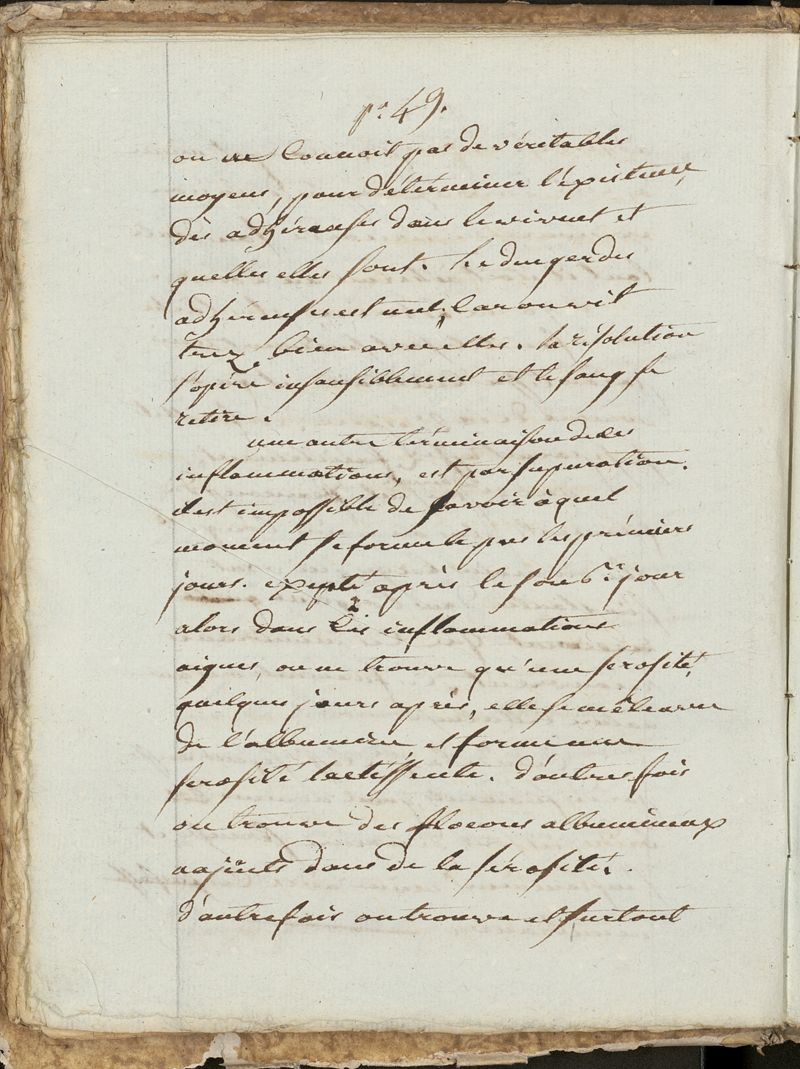 p. 49.
on ne connoit pas de véritables
moyens, pour déterminer l'existence,
des adhérenses dans le vivent et
quelles elles sont. le danger des
adhérenses est nul; car on vit
très bien avec elles. la résolution
s'opère insensiblement et le sang se
retire.
une autre términaison des
inflammations, est par supuration.
il est impossible de savoir à quel
moment se forme le pus les prémiers
jours. exepté après le 5 ou 6.e jour
alors dans les inflammations
aigues, on ne trouve qu'une serosité,
quelques jours après, elle se mêle avec
de l'albumine, et forme une
serosité lactéssente. d'autres fois
on trouve des flocons albumineux
najents dans de la sérosité.
d'autrefois on trouve et surtout